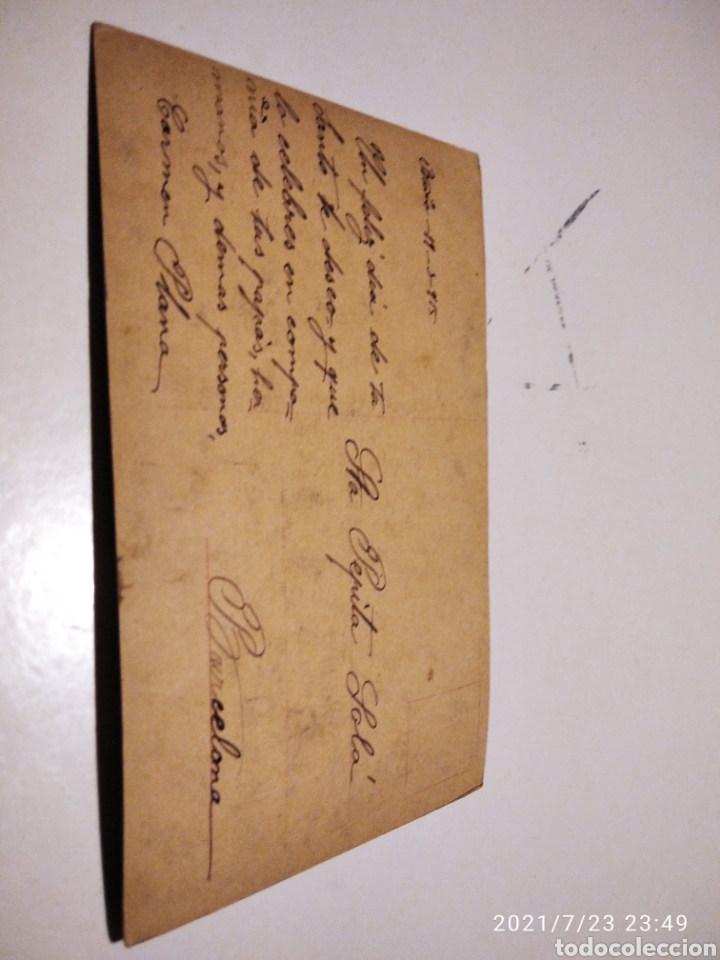 19-3-915
Un feliz dia de tu
Santo te deseo y que
lo celebres en compa-
ñia de tus papás, her-
manos, y demas personas,
Carmen Plana
Sta Pepita Solá
Barcelona
2021/7/23 23:49
todocoleccion